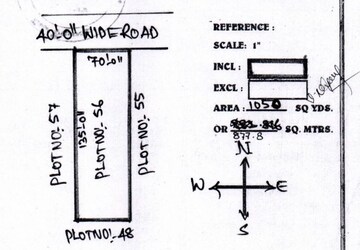 40'.0" WIDE ROAD
70'.0"
PLOT NO!- 57
135'.0"
PLOT NO!- 56
PLOT NO!- 55
PLOT NO!- 48
REFERENCE :
SCALE: 1"
INCL :
EXCL :
AREA : 1050 SQ YDS.
OR 877.8 SQ. MTRS.
N
W E
S